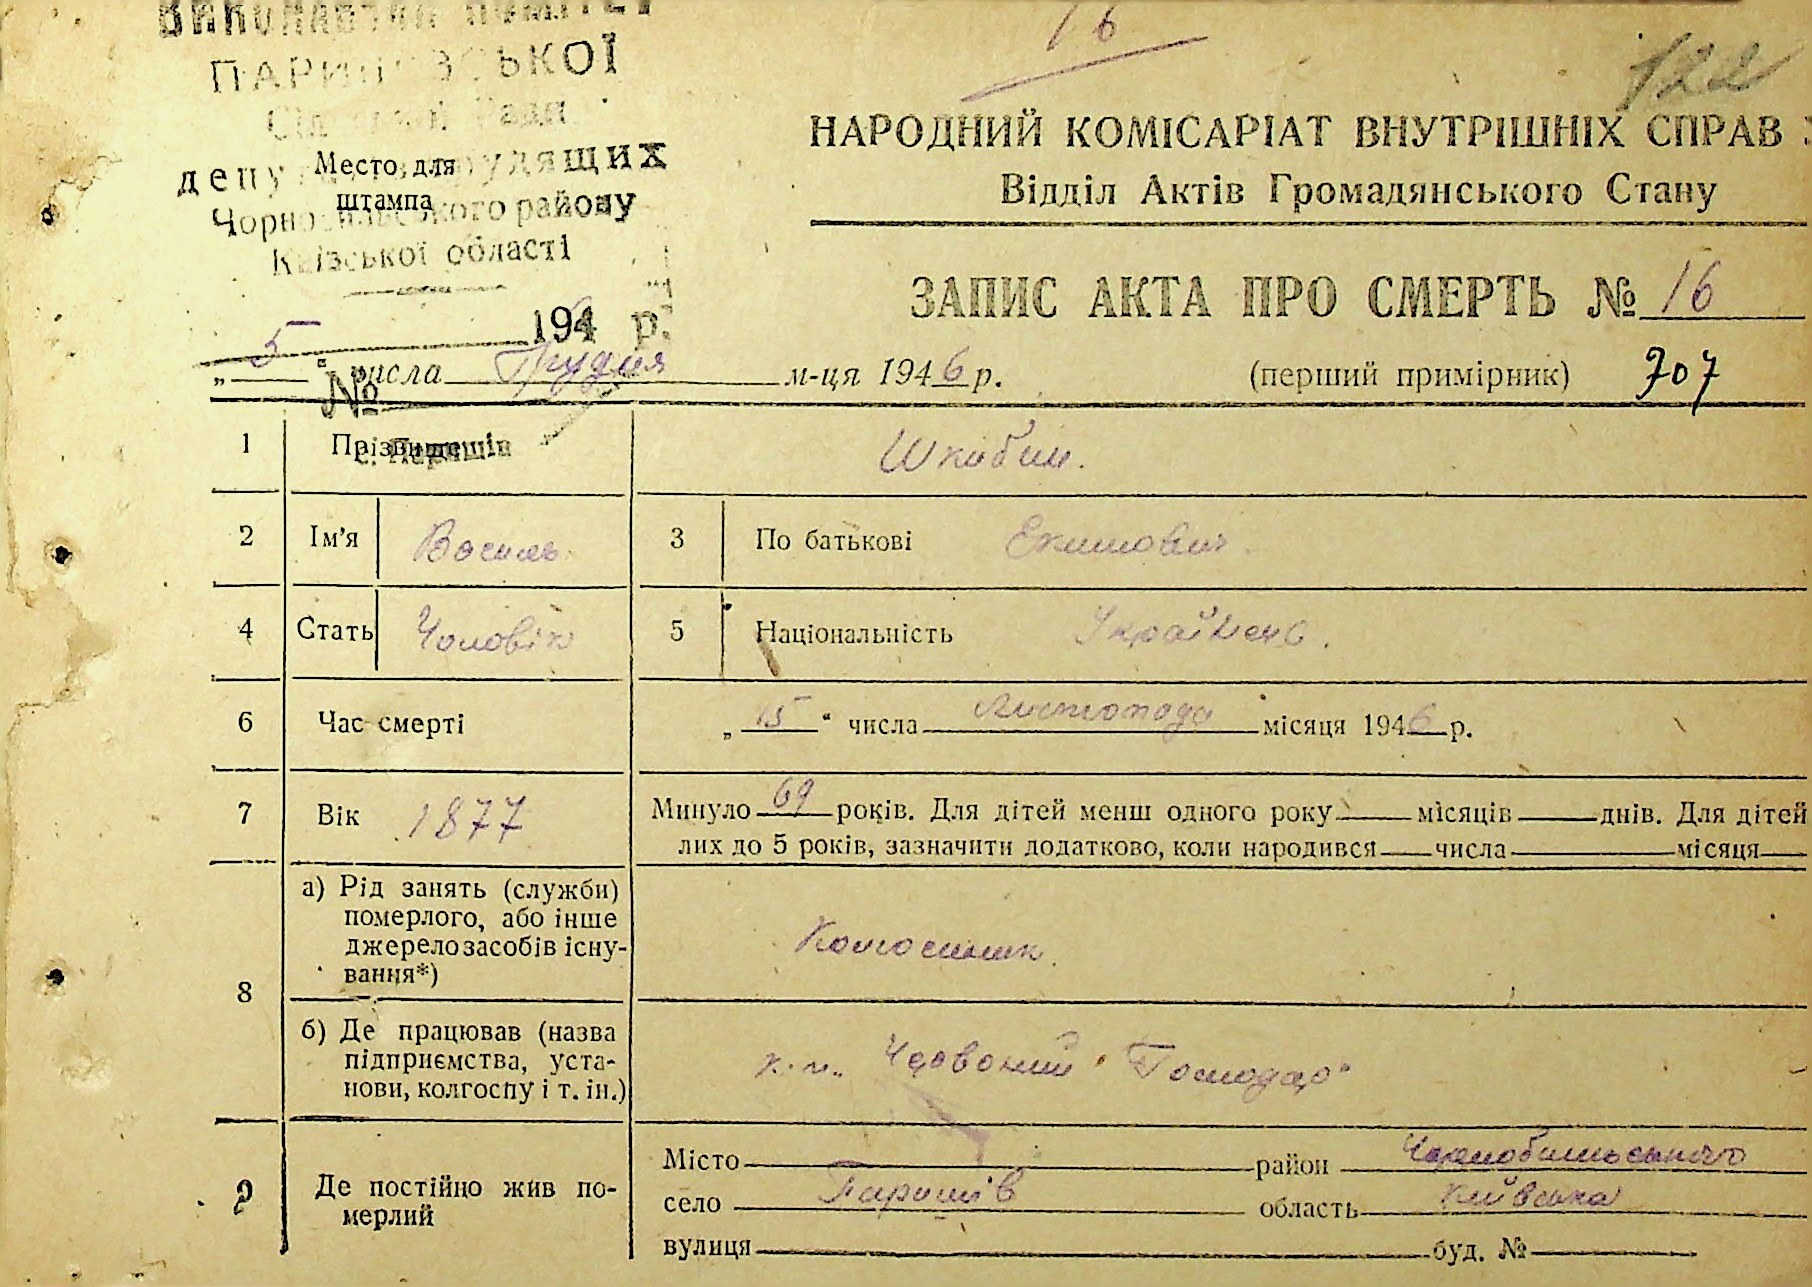 ВИКОНАВЧИЙ КОМІТЕТ
ПАРИШІВСЬКОЇ
Сільської Ради
депутатів трудящих
Чорнобильського району
Київської області
194 р.
№
с. Паришів
Место для
штампа
16
122
НАРОДНИЙ КОМІСАРІАТ ВНУТРІШНІХ СПРАВ
Відділ Актів Громадянського Стану
ЗАПИС АКТА ПРО СМЕРТЬ № 16
„ 5 “ числа Грудня м-ця 1946 р. (перший примірник) 707
1 Прізвище
2 Ім'я Василь 3 По батькові
4 Стать Чоловік 5 Національність Українець.
6 Час смерті „ 15 “ числа Листопада місяця 1946 р.
7 Вік 1877 Минуло 69 років. Для дітей менш одного року місяців днів. Для дітей
лих до 5 років, зазначити додатково, коли народився числа місяця
8 а) Рід занять (служби)
померлого, або інше
джерело засобів існу-
вання*)
Колгоспник.
б) Де працював (назва
підприємства, уста-
нови, колгоспу і т. ін.)
Червоний "Господар"
9 Де постійно жив по-
мерлий
Місто район Чорнобильського
село Паришів область Київська
вулиця буд. №